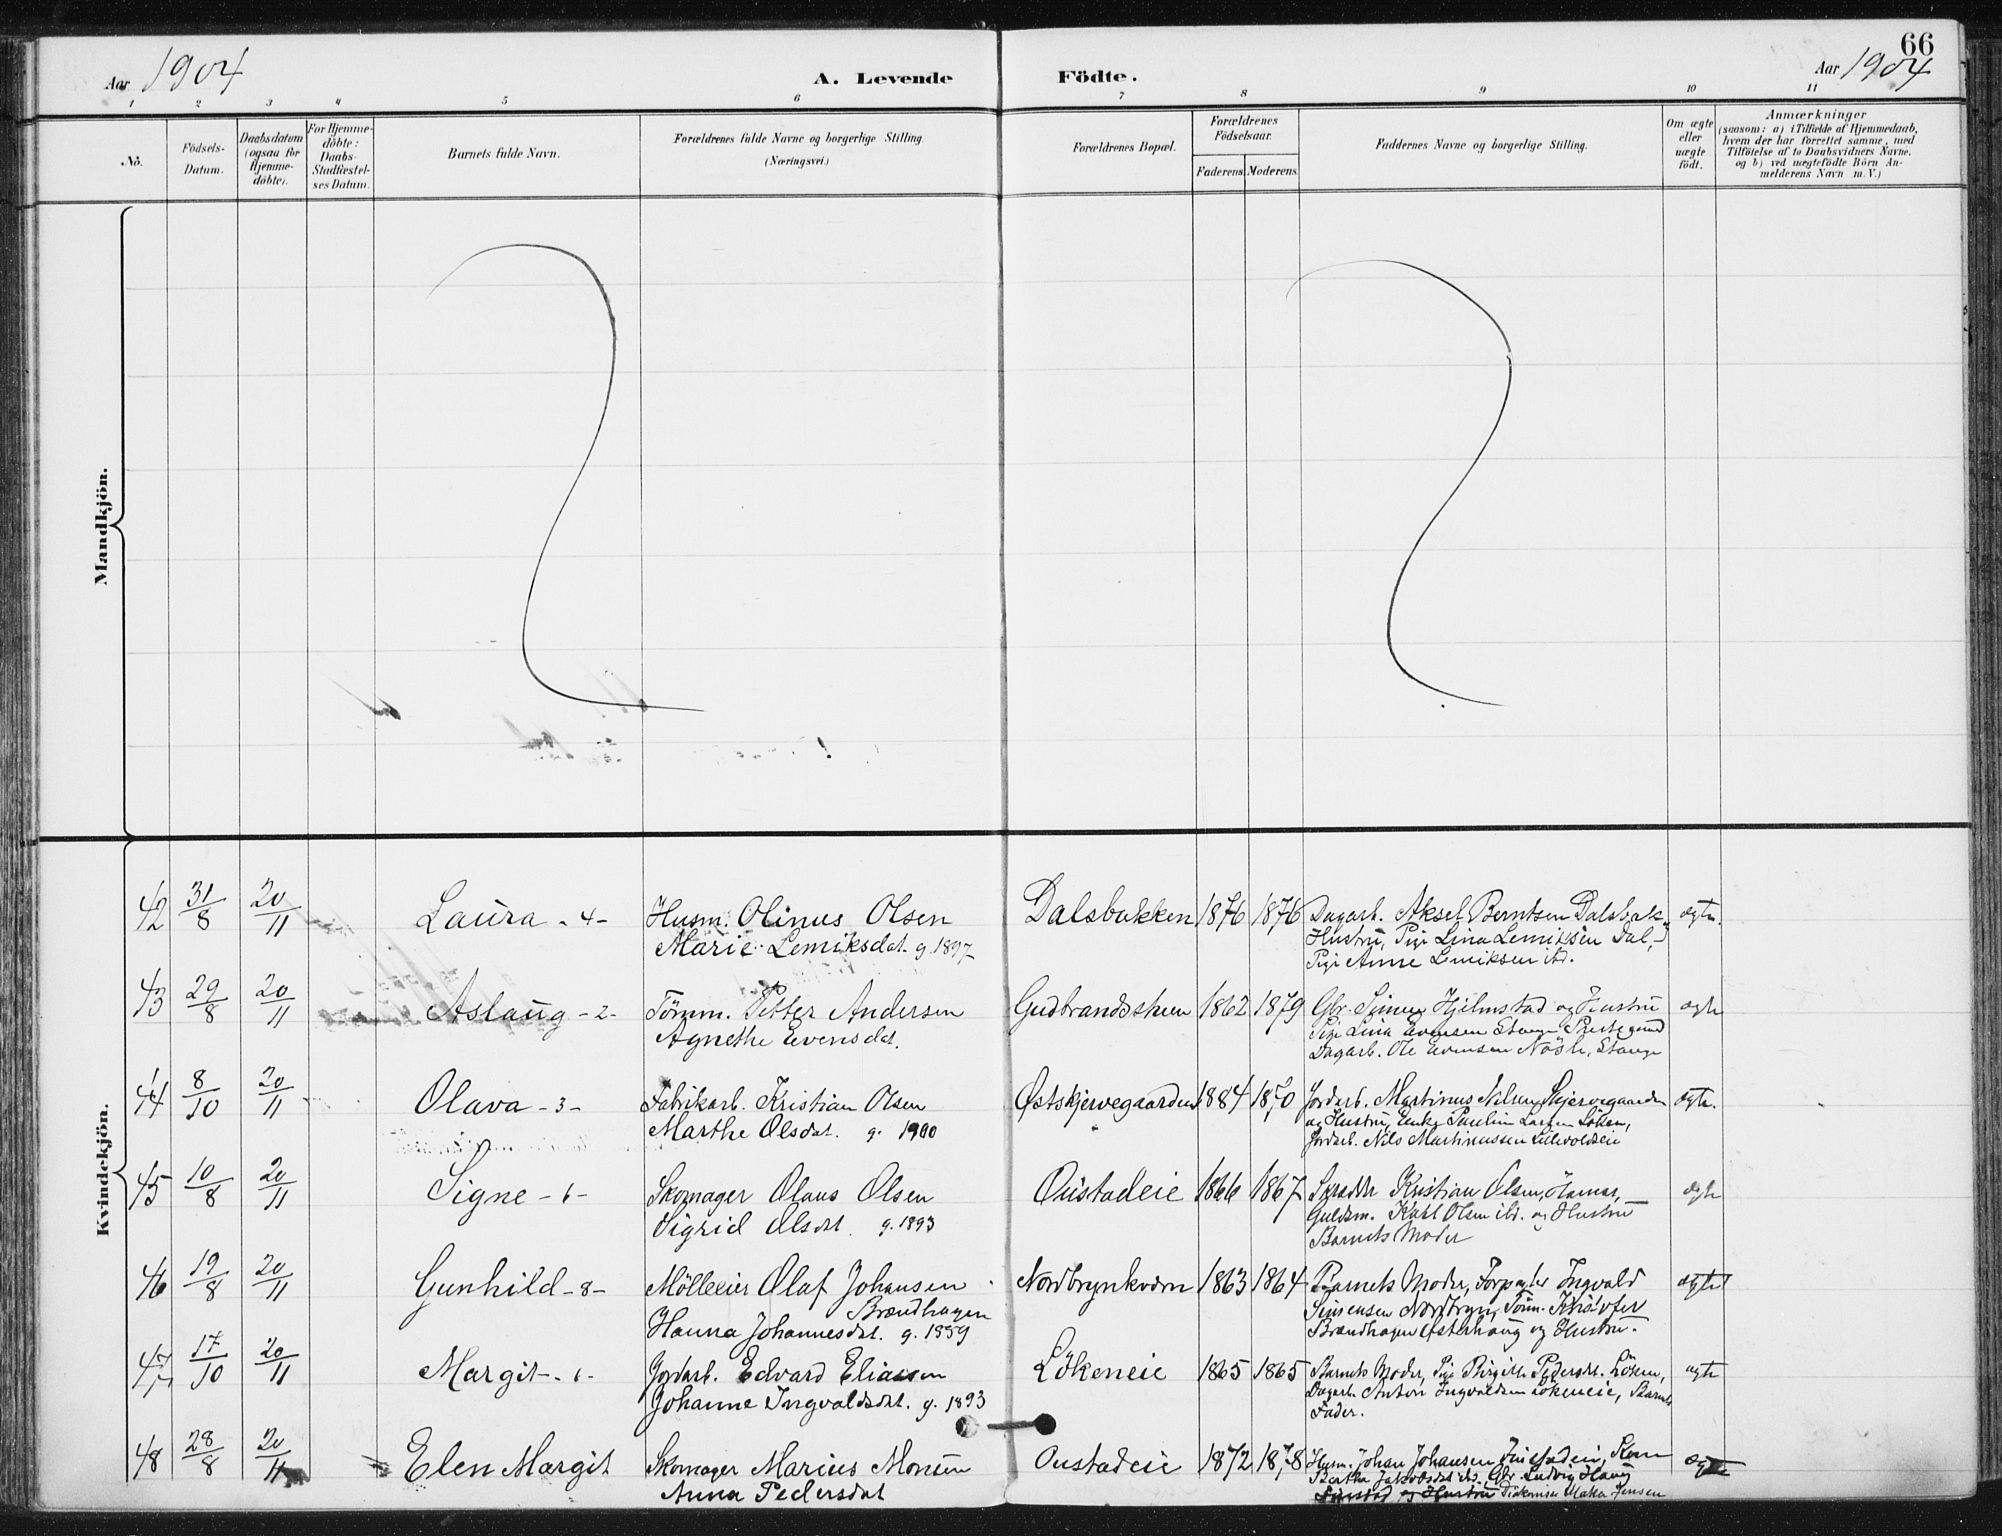 66
Aar 1904
A. Levende Födte.
Aar 1904
1 2 3 4 5 6 7 8 9 10 11
No.
Födsels-Datum.
Daabsdatum (ogsaa for Hjemme-döbte).
For Hjemme-döbte: Daabs-Stadfæstel-ses Datum.
Barnets fulde Navn.
Forældrenes fulde Navne og borgerlige Stilling
(Næringsvei.)
Forældrenes Bopæl.
Forældrenes Födselsaar.
Faderens Moderens
Faddernes Navne og borgerlige Stilling.
Om ægte eller uægte födt.
Anmærkninger
(saasom: a) i Tilfælde af Hjemmedaab,
hvem der har forrettet samme, med
Tilföielse af to Daabsvidners Navne,
og b) ved uægtefödte Börn An-
melderens Navn m. V.)
Mandkjön.
Kvindekjön.
42 31/8 20/11 Laura - 4 - Husm. Olinus Olsen Dalsbakken 1876 1876 Dagarb. Aksel Berntsen Dalsbak, ægte.
Marie Lemiksdat. g. 1897 Hustru, Pige Lina Lemiksen Dal,
Pige Anne Lemiksen ibd.
43 29/8 20/11 Aslaug - 2 - Tømm. Petter Andersen Gudbrandsstuen 1862 1879 Gbr. Hjelmstad og Hustru ægte
Agnethe Evensdat. Pige Lina Evensen Stange Præstegaard
Dagarb. Ole Evensen Stange
44 8/10 20/11 Olava - 3 - Fabrikarb. Kristian Olsen Østskjervegaarden 1884 1870 Jordarb. Martinus Nilsen Skjervegaarden ægte.
Marthe Olsdat. g. 1900 og Hustru, Enke Pauline Larsen Løken,
Jordarb. Nils Martinussen
45 10/8 20/11 Signe - 6 - Skomager Olaus Olsen Oustadeie 1866 1867 Skrædder Kristian Olsen, Hamar, ægte
Sigrid Olsdat. g. 1893 Guldsm. Karl Olsen ibd. og Hustru
Barnets Moder
46 19/8 20/11 Gunhild - 8 - Mölleeier Olaf Johansen Nordbrynkværn 1863 1864 Barnets Moder, Forpagter Ingvald ægte
Brændhagen Simensen Nordbryn, Tömm. Kristofer
Hanna Johannesdat. g. 1889 Brændhagen Østerhaug og Hustru.
47 17/10 20/11 Margit - 6 - Jordarb. Edvard Eliassen Lökeneie 1865 1865 Barnets Moder, Pige Birgitte Pedersdt. Löken, ægte
Johanne Ingvaldsdat. g. 1893 Dagarb. Anton Ingvaldsen Lökeneie, Barnets
Fader.
48 28/8 20/11 Elen Margit Skomager Marius Monsen Oustadeie 1872 1878 Husm. Johan Johansen Kone ægte
Anna Pedersdat Bertha Jakobsdat ibd. Gbr. Ludvig Haug
og Hustru Jensen